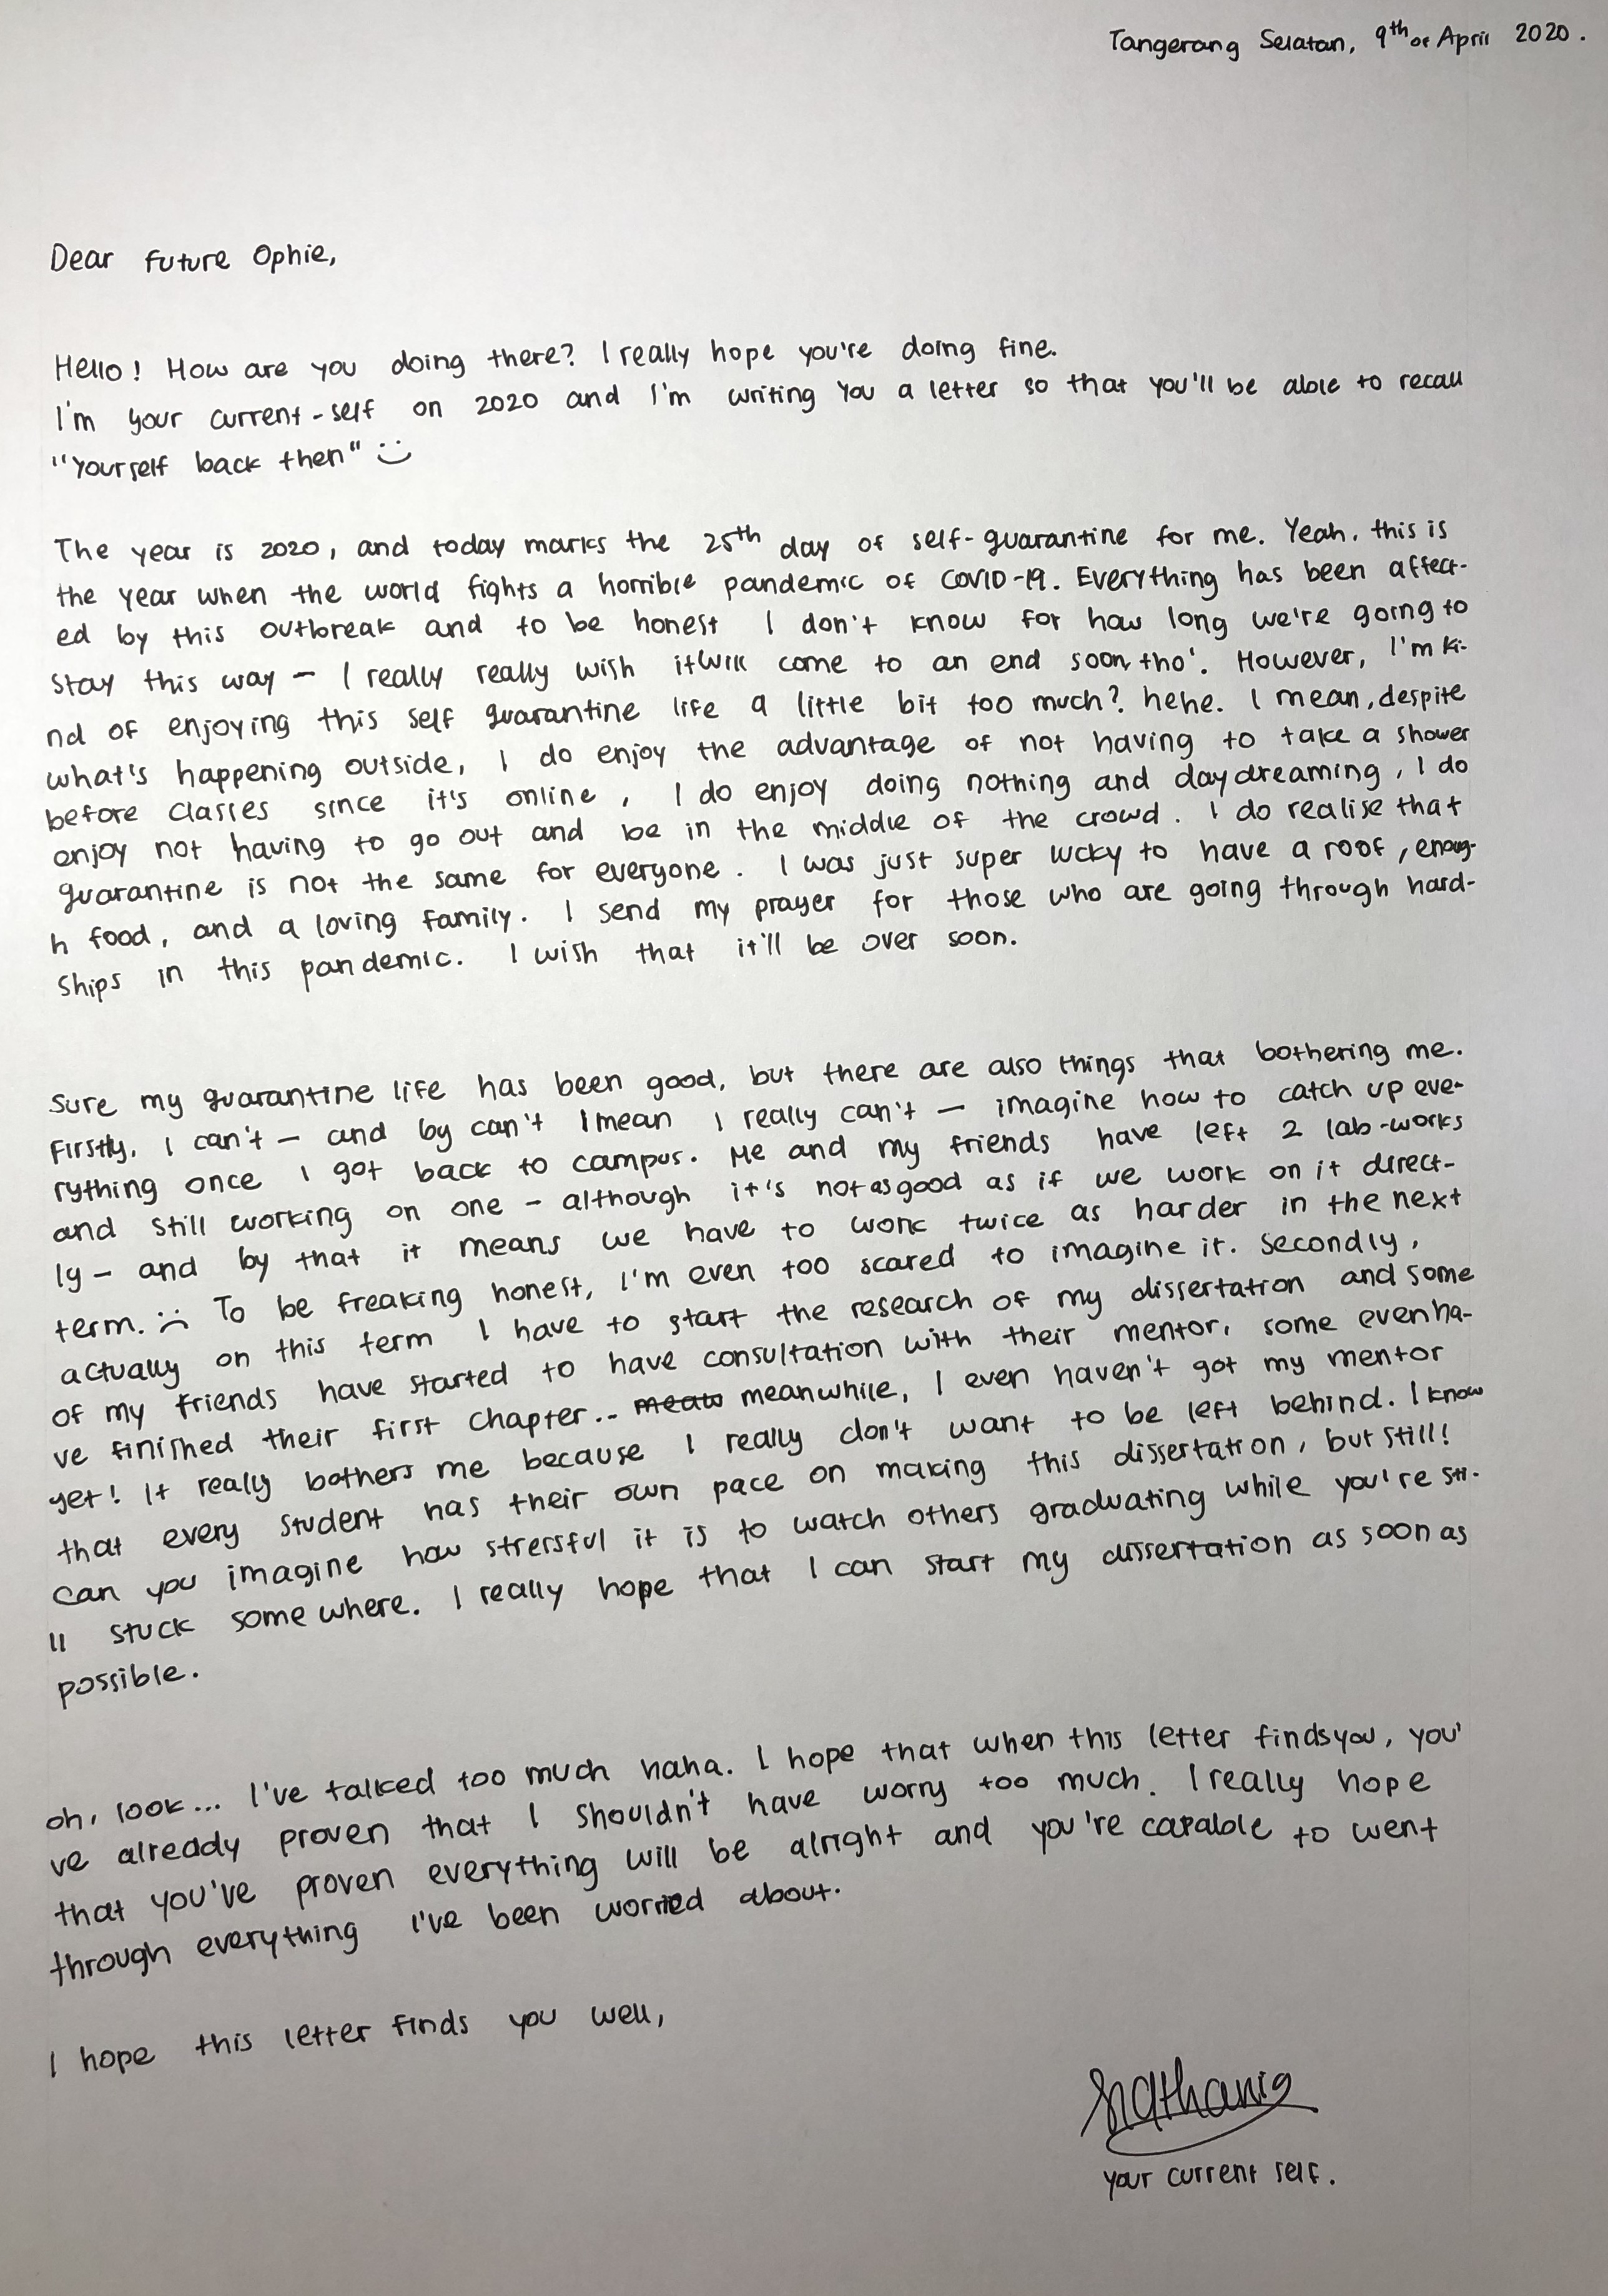 Tangerang Selatan, 9th of April 2020.
Dear Future Ophie,
Hello! How are you doing there? I really hope you're doing fine.
I'm your current-self on 2020 and I'm writing you a letter so that you'll be able to recall
"Yourself back then" :)
The year is 2020, and today marks the 25th day of self-quarantine for me. Yeah, this is
the year when the world fights a horrible pandemic of COVID-19. Everything has been affect-
ed by this outbreak and to be honest I don't know for how long we're going to
stay this way - I really really wish it will come to an end soon, tho'. However, I'm ki-
nd of enjoying this self quarantine life a little bit too much? hehe. I mean, despite
what's happening outside, I do enjoy the advantage of not having to take a shower
before classes since it's online, I do enjoy doing nothing and daydreaming, I do
enjoy not having to go out and be in the middle of the crowd. I do realise that
quarantine is not the same for everyone. I was just super lucky to have a roof, enoug-
h food, and a loving family. I send my prayer for those who are going through hard-
ships in this pandemic. I wish that it'll be over soon.
Sure my quarantine life has been good, but there are also things that bothering me.
Firstly, I can't - and by can't I mean I really can't - imagine how to catch up eve-
rything once I got back to campus. Me and my friends have left 2 lab-works
and still working on one - although it's not as good as if we work on it direct-
ly - and by that it means we have to work twice as harder in the next
term. :( To be freaking honest, I'm even too scared to imagine it. Secondly,
actually on this term I have to start the research of my dissertation and some
of my friends have started to have consultation with their mentor, some even ha-
ve finished their first chapter.. meanwhile, I even haven't got my mentor
yet! It really bothers me because I really don't want to be left behind. I know
that every student has their own pace on making this dissertation, but still!
Can you imagine how stressful it is to watch others graduating while you're sti-
ll stuck somewhere. I really hope that I can start my dissertation as soon as
possible.
Oh, look... I've talked too much haha. I hope that when this letter finds you, you'
ve already proven that I shouldn't have worry too much. I really hope
that you've proven everything will be alright and you're capable to went
through everything I've been worried about.
I hope this letter finds you well,
your current self.